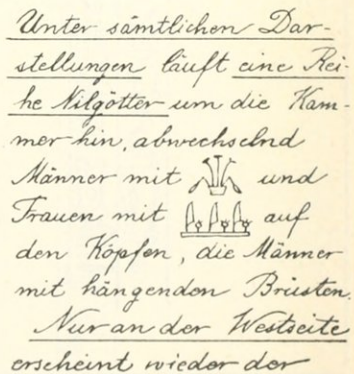 Unter sämtlichen Dar-
stellungen läuft eine Rei-
he Nilgötter um die Kam-
mer hin, abwechselnd
Männer mit und
Frauen mit auf
den Köpfen, die Männer
mit hängenden Brüsten.
Nur an der Westseite
erscheint wieder der